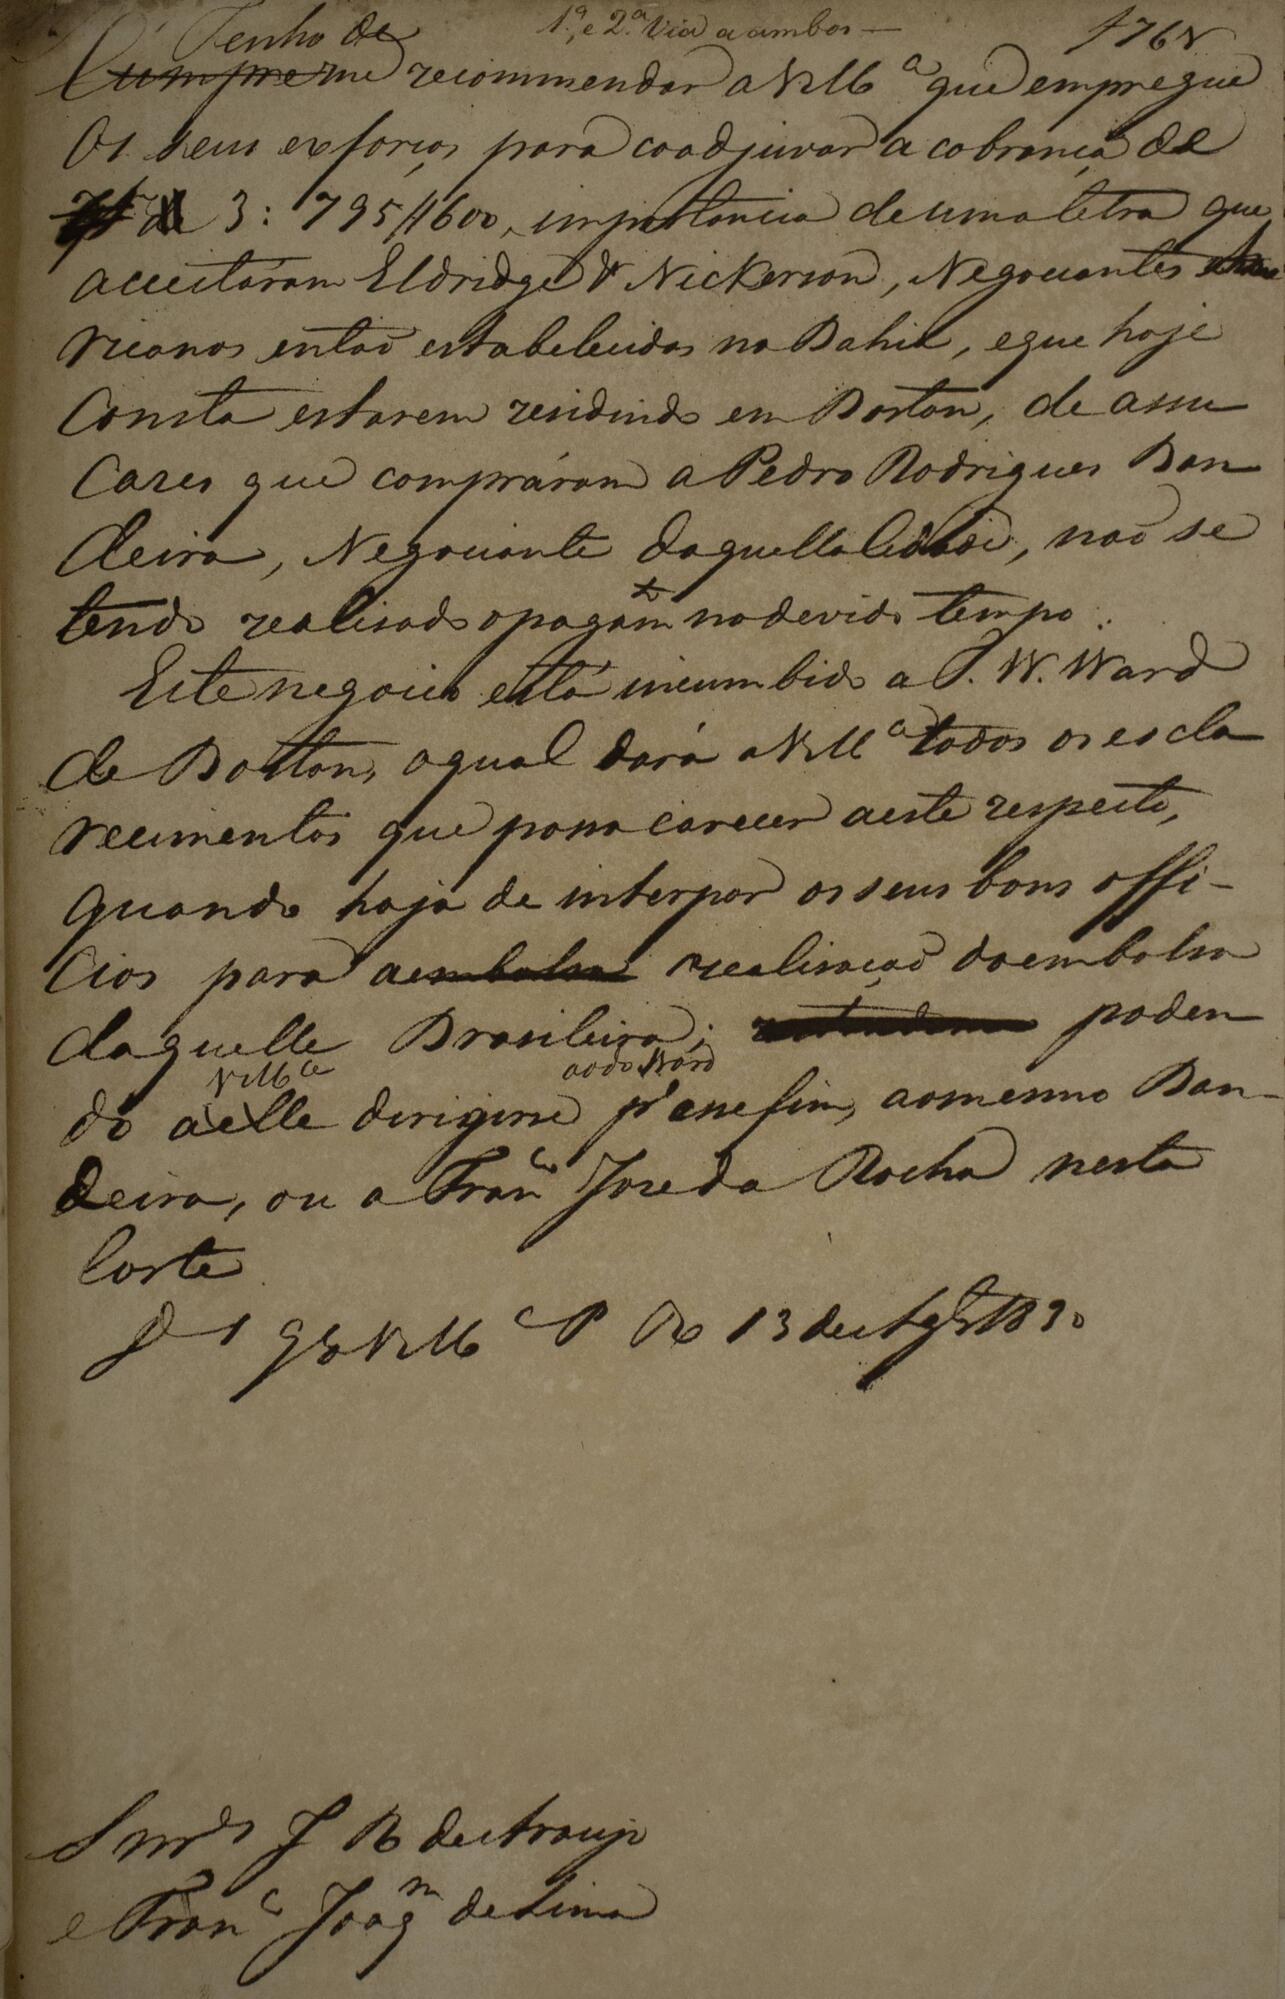 1ª, e 2ª. Via a ambos —
Tenho de
Cumpre me recommendar a VM.ce que empregue
os seus exforços para coadjuvar a cobrança de
3: 795//600, importancia de uma letra que
acceitáram Eldridge & Nickerson, Negociantes Ame
ricanos então estabelecidos na Bahia, e que hoje
Consta estarem residindo em Boston, de assu
cares que compráram a Pedro Rodrigues Ban
deira, Negociante daquella Cidade, não se
tendo realisado o pagamto no devido tempo.
Este negocio está incumbido a T. W. Ward
de Boston, o qual dará a VMce todos os escla
recimentos que possa carecer a este respeito,
quando haja de interpor os seus bons offi-
cios para a embolso realisação do embolso
daquelle Brasileiro; poden
VMce ao do Ward
do a elle dirigirse pa esse fim, ao mesmo Ban-
deira, ou a Franco Jose da Rocha nesta
Corte
Ds gde VMce P R 13 de Agto 1830
Snrs J R de Araujo
e Franco Joaqm de Lima